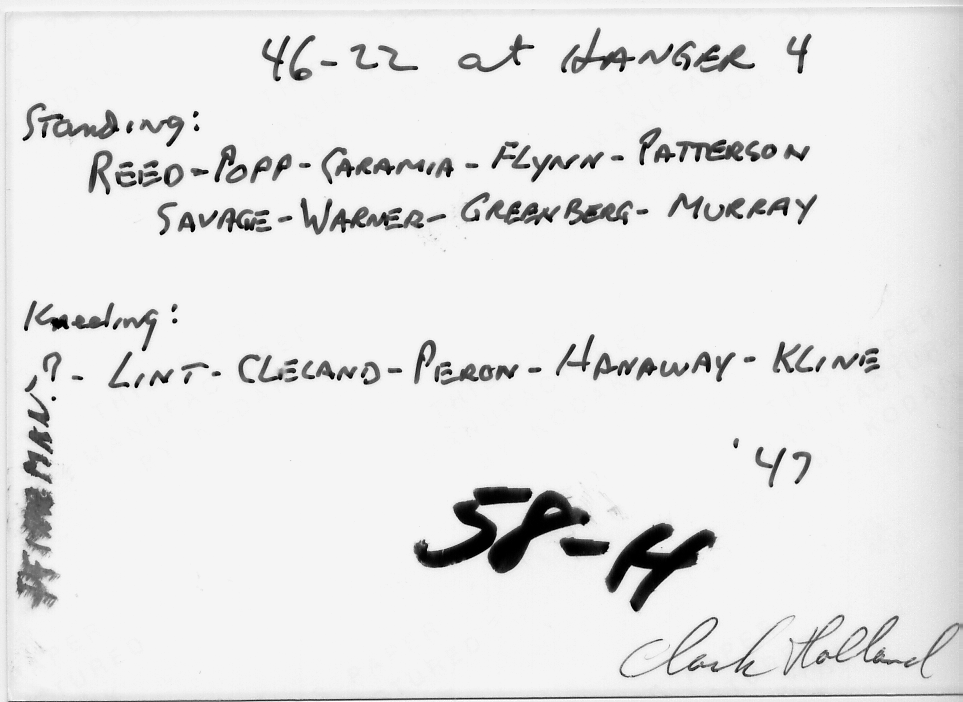 46-22 at HANGER 4
Standing:
REED-POPP-CARAMIA-FLYNN-PATTERSON
SAVAGE-WARNER-GREENBERG-MURRAY
Kneeling:
?- LINT-CLELAND-PERON-HANAWAY-KLINE
'47
58-H
Clark Holland